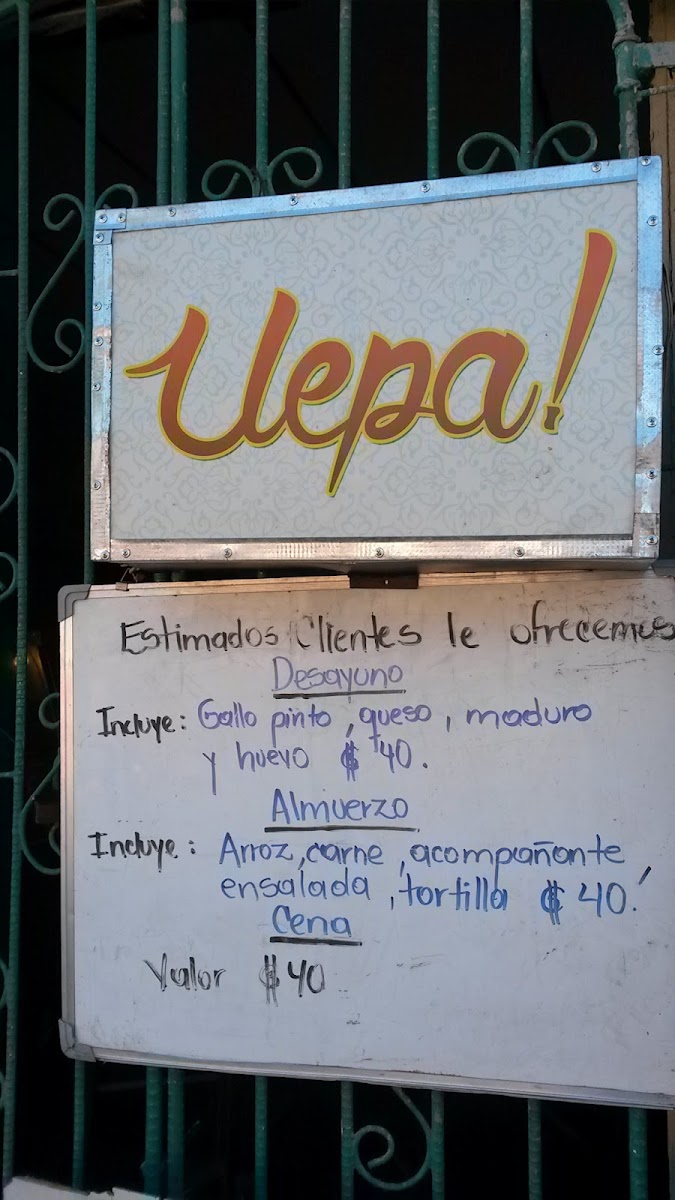 Uepa!
Estimados Clientes le ofrecemos
Desayuno
Incluye: Gallo pinto, queso, maduro
y huevo $ 40.
Almuerzo
Incluye: Arroz, carne, acompañante,
ensalada, tortilla $ 40.
Cena
Valor $ 40